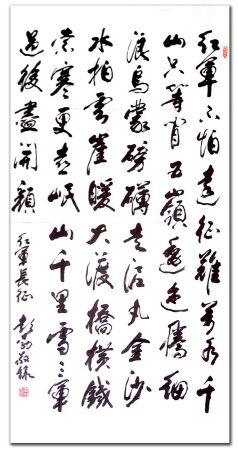 紅軍不怕遠征難萬水千
山只等閑五嶺逶迤騰細
浪烏蒙磅礴走泥丸金沙
水拍雲崖暖大渡橋橫鐵
索寒更喜岷山千里雪三軍
過後盡開顏
紅軍長征 彭